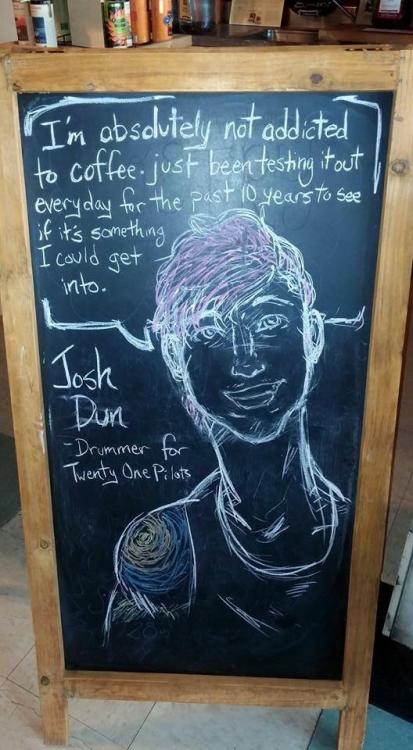 I'm absolutely not addicted
to coffee. just been testing it out
everyday for the past 10 years to see
if it's something
I could get
into.
Josh
Dun
-Drummer for
Twenty One Pilots